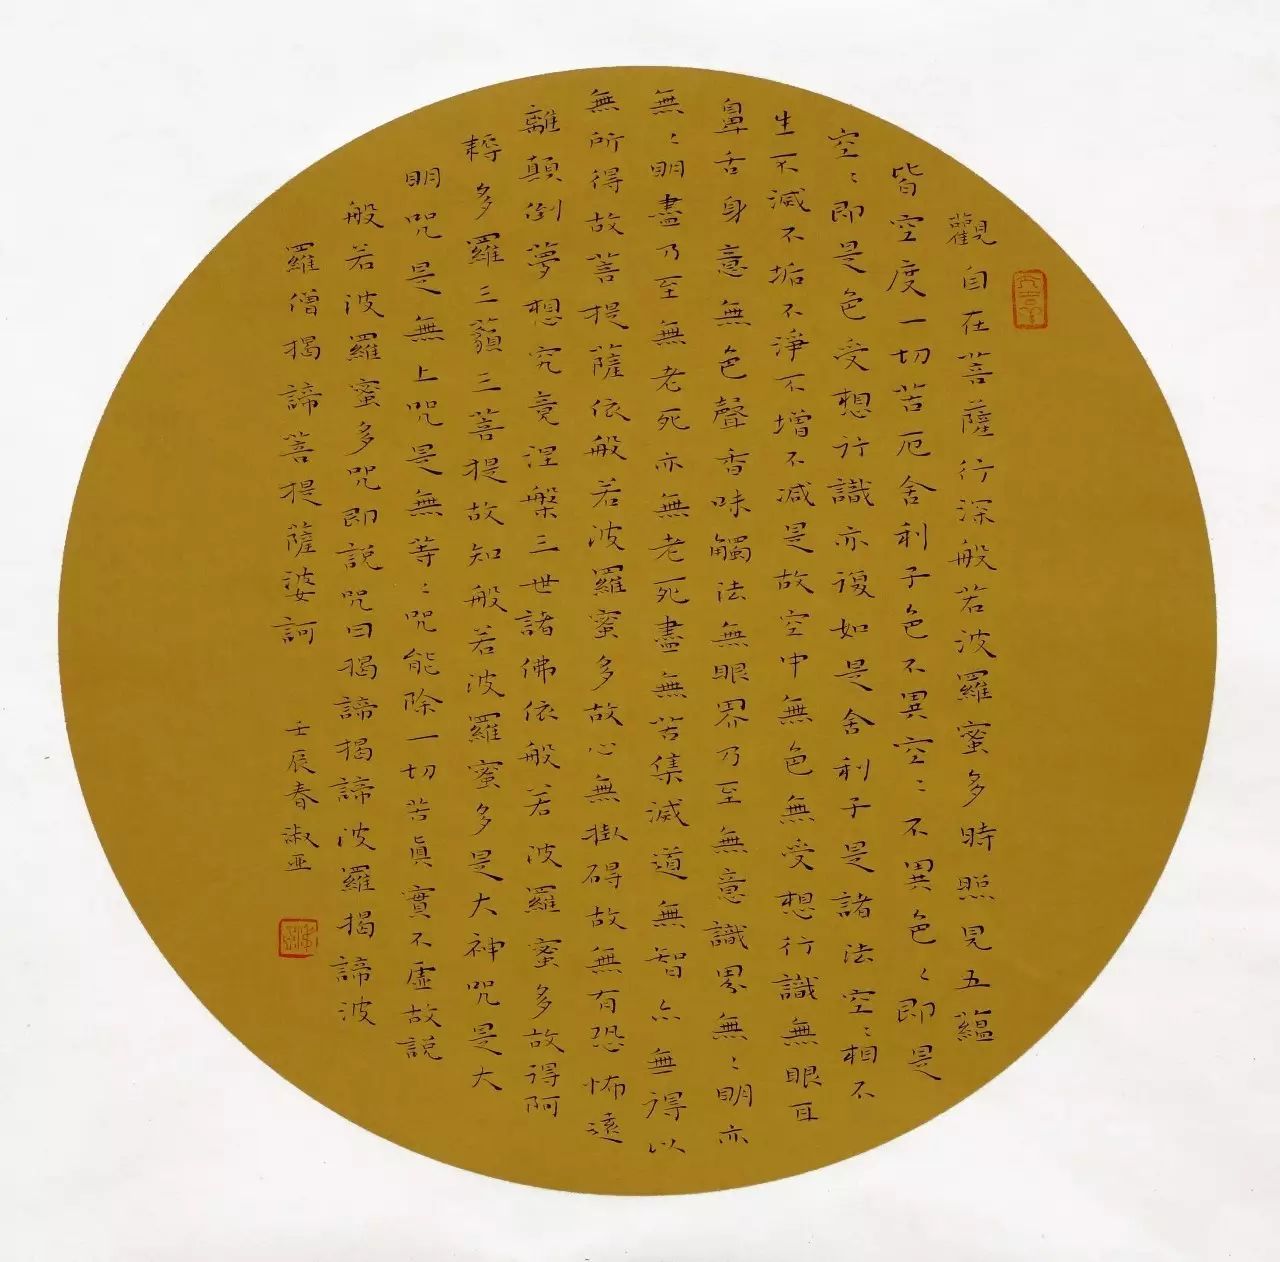 觀自在菩薩行深般若波羅蜜多時照見五蘊
皆空度一切苦厄舍利子色不異空〻不異色〻即是
空〻即是色受想行識亦復如是舍利子是諸法空〻相不
生不滅不垢不淨不增不減是故空中無色無受想行識無眼耳
鼻舌身意無色聲香味觸法無眼界乃至無意識界無〻明亦
無〻明盡乃至無老死亦無老死盡無苦集滅道無智亦無得以
無所得故菩提薩依般若波羅蜜多故心無掛碍故無有恐怖遠
離顛倒夢想究竟涅槃三世諸佛依般若波羅蜜多故得阿
耨多羅三藐三菩提故知般若波羅蜜多是大神咒是大
明咒是無上咒是無等〻咒能除一切苦真實不虛故說
般若波羅蜜多咒即說咒曰揭諦揭諦波羅揭諦波
羅僧揭諦菩提薩婆訶
壬辰春淑亚